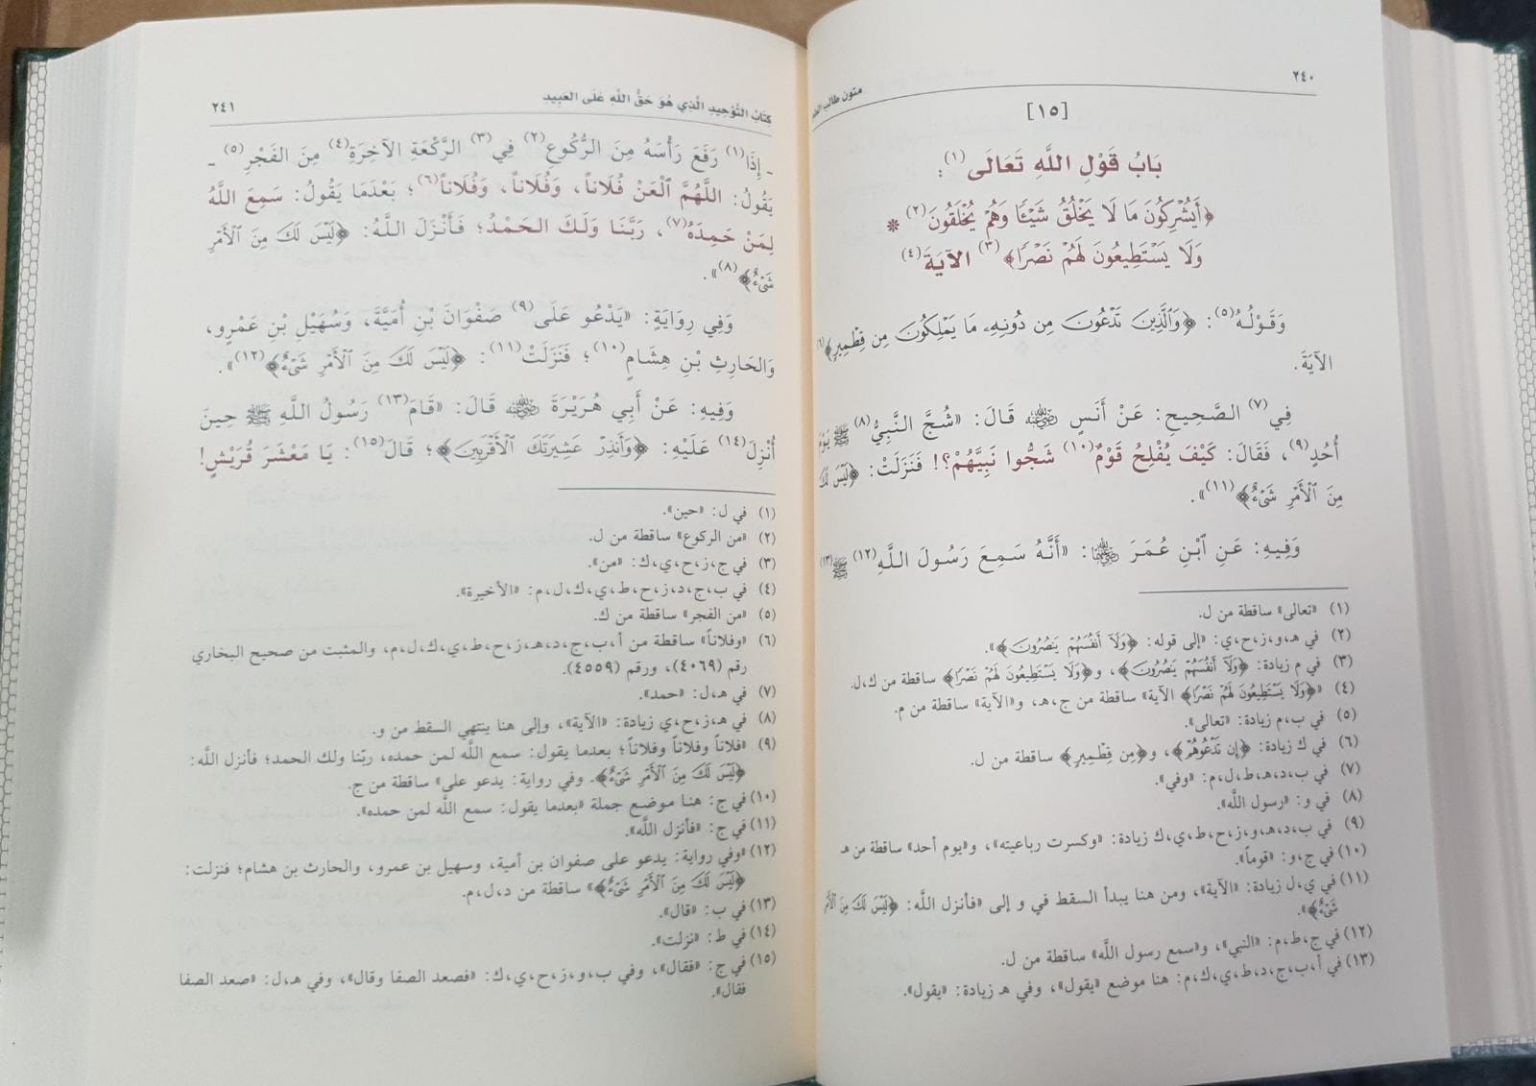 ٢٤٠
متون طالب
[١٥]
بَابُ قَوْلِ اللَّهِ تَعَالَى(١):
﴿أَيُشْرِكُونَ مَا لَا يَخْلُقُ شَيْئًا وَهُمْ يُخْلَقُونَ(٢) *
وَلَا يَسْتَطِيعُونَ لَهُمْ نَصْرًا﴾(٣) الآيَةَ(٤)
وَقَوْلُهُ(٥): ﴿وَالَّذِينَ تَدْعُونَ مِن دُونِهِ مَا يَمْلِكُونَ مِن قِطْمِيرٍ﴾(٦)
الآيَةَ.
فِي(٧) الصَّحِيحِ: عَنْ أَنَسٍ ﵁ قَالَ: «شُجَّ النَّبِيُّ(٨) ﷺ يَوْمَ
أُحُدٍ(٩)، فَقَالَ: كَيْفَ يُفْلِحُ قَوْمٌ(١٠) شَجُّوا نَبِيَّهُمْ؟! فَنَزَلَتْ: ﴿لَيْسَ لَكَ
مِنَ ٱلْأَمْرِ شَيْءٌ﴾(١١)».
وَفِيهِ: عَنِ ٱبْنِ عُمَرَ ﵄: «أَنَّهُ سَمِعَ رَسُولَ اللَّهِ(١٢) ﷺ(١٣)
(١) «تعالى» ساقطة من ل.
(٢) في هـ،و،ز،ح،ي: «إلى قوله: ﴿وَلَآ أَنفُسَهُمْ يَنصُرُونَ﴾».
(٣) في م زيادة: ﴿وَلَآ أَنفُسَهُمْ يَنصُرُونَ﴾، و﴿وَلَا يَسْتَطِيعُونَ لَهُمْ نَصْرًا﴾ ساقطة من ك،ل.
(٤) «﴿وَلَا يَسْتَطِيعُونَ لَهُمْ نَصْرًا﴾ الآية» ساقطة من ج،هـ، و«الآية» ساقطة من م.
(٥) في ب،م زيادة: «تعالى».
(٦) في ك زيادة: ﴿إِن تَدْعُوهُمْ﴾، و﴿مِن قِطْمِيرٍ﴾ ساقطة من ل.
(٧) في ب،د،هـ،ط،ل،م: «وفي».
(٨) في و: «رسول اللَّه».
(٩) في ب،د،هـ،و،ز،ح،ط،ي،ك زيادة: «وكسرت رباعيته»، و«يوم أحد» ساقطة من هـ
(١٠) في ج،و: «قوماً».
(١١) في ي،ل زيادة: «الآية»، ومن هنا يبدأ السقط في و إلى «فأنزل اللَّه: ﴿لَيْسَ لَكَ مِنَ ٱلْأَمْرِ
شَيْءٌ﴾».
(١٢) في ج،ط،م: «النبي»، و«سمع رسول اللَّه» ساقطة من ل.
(١٣) في أ،ب،ج،د،ط،ي،ك،م: هنا موضع «يقول»، وفي هـ زيادة: «يقول».
كتَابُ التَّوْحِيدِ الَّذِي هُوَ حَقُّ اللَّهِ عَلَى العَبِيدِ
٢٤١
ـ إِذَا(١) رَفَعَ رَأْسَهُ مِنَ الرُّكُوعِ(٢) فِي(٣) الرَّكْعَةِ الآخِرَةِ(٤) مِنَ الفَجْرِ(٥) ـ
يَقُولُ: اللَّهُمَّ ٱلْعَنْ فُلَاناً، وَفُلَاناً، وَفُلَاناً(٦)؛ بَعْدَمَا يَقُولُ: سَمِعَ اللَّهُ
لِمَنْ حَمِدَهُ(٧)، رَبَّنَا وَلَكَ الحَمْدُ؛ فَأَنْزَلَ اللَّهُ: ﴿لَيْسَ لَكَ مِنَ الْأَمْرِ
شَيْءٌ﴾(٨)».
وَفِي رِوَايَةٍ: «يَدْعُو عَلَى(٩) صَفْوَانَ بْنِ أُمَيَّةَ، وَسُهَيْلِ بْنِ عَمْرٍو،
وَالحَارِثِ بْنِ هِشَامٍ(١٠)؛ فَنَزَلَتْ(١١): ﴿لَيْسَ لَكَ مِنَ ٱلْأَمْرِ شَيْءٌ﴾(١٢)».
وَفِيهِ: عَنْ أَبِي هُرَيْرَةَ ﵁ قَالَ: «قَامَ(١٣) رَسُولُ اللَّهِ ﷺ حِينَ
أُنْزِلَ(١٤) عَلَيْهِ: ﴿وَأَنذِرْ عَشِيرَتَكَ ٱلْأَقْرَبِينَ﴾؛ قَالَ(١٥): يَا مَعْشَرَ قُرَيْشٍ!
(١) في ل: «حين».
(٢) «من الركوع» ساقطة من ل.
(٣) في ج،ز،ح،ي،ك: «من».
(٤) في ب،ج،د،ز،ح،ط،ي،ك،ل،م: «الأخيرة».
(٥) «من الفجر» ساقطة من ك.
(٦) «وفلاناً» ساقطة من أ،ب،ج،د،هـ،ز،ح،ط،ي،ك،ل،م، والمثبت من صحيح البخاري
رقم (٤٠٦٩)، ورقم (٤٥٥٩).
(٧) في هـ،ل: «حمد».
(٨) في هـ،ز،ح،ي زيادة: «الآية»، وإلى هنا ينتهي السقط من و.
(٩) «فلاناً وفلاناً وفلاناً؛ بعدما يقول: سمع اللَّه لمن حمده، ربّنا ولك الحمد؛ فأنزل اللَّه:
﴿لَيْسَ لَكَ مِنَ الْأَمْرِ شَيْءٌ﴾. وفي رواية: يدعو على» ساقطة من ج.
(١٠) في ج: هنا موضع جملة «بعدما يقول: سمع اللَّه لمن حمده».
(١١) في ج: «فأنزل اللَّه».
(١٢) «وفي رواية: يدعو على صفوان بن أمية، وسهيل بن عمرو، والحارث بن هشام؛ فنزلت:
﴿لَيْسَ لَكَ مِنَ ٱلْأَمْرِ شَيْءٌ﴾» ساقطة من د،ل،م.
(١٣) في ب: «قال».
(١٤) في ط: «نزلت».
(١٥) في ج: «فقال»، وفي ب،و،ز،ح،ي،ك: «فصعد الصفا وقال»، وفي هـ،ل: «صعد الصفا
فقال».